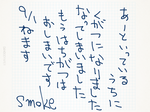 あっといっている
うちに
くがつになりました
なてしまいました
もうはちがつは
おしまいです
9/1 ねます
smoke